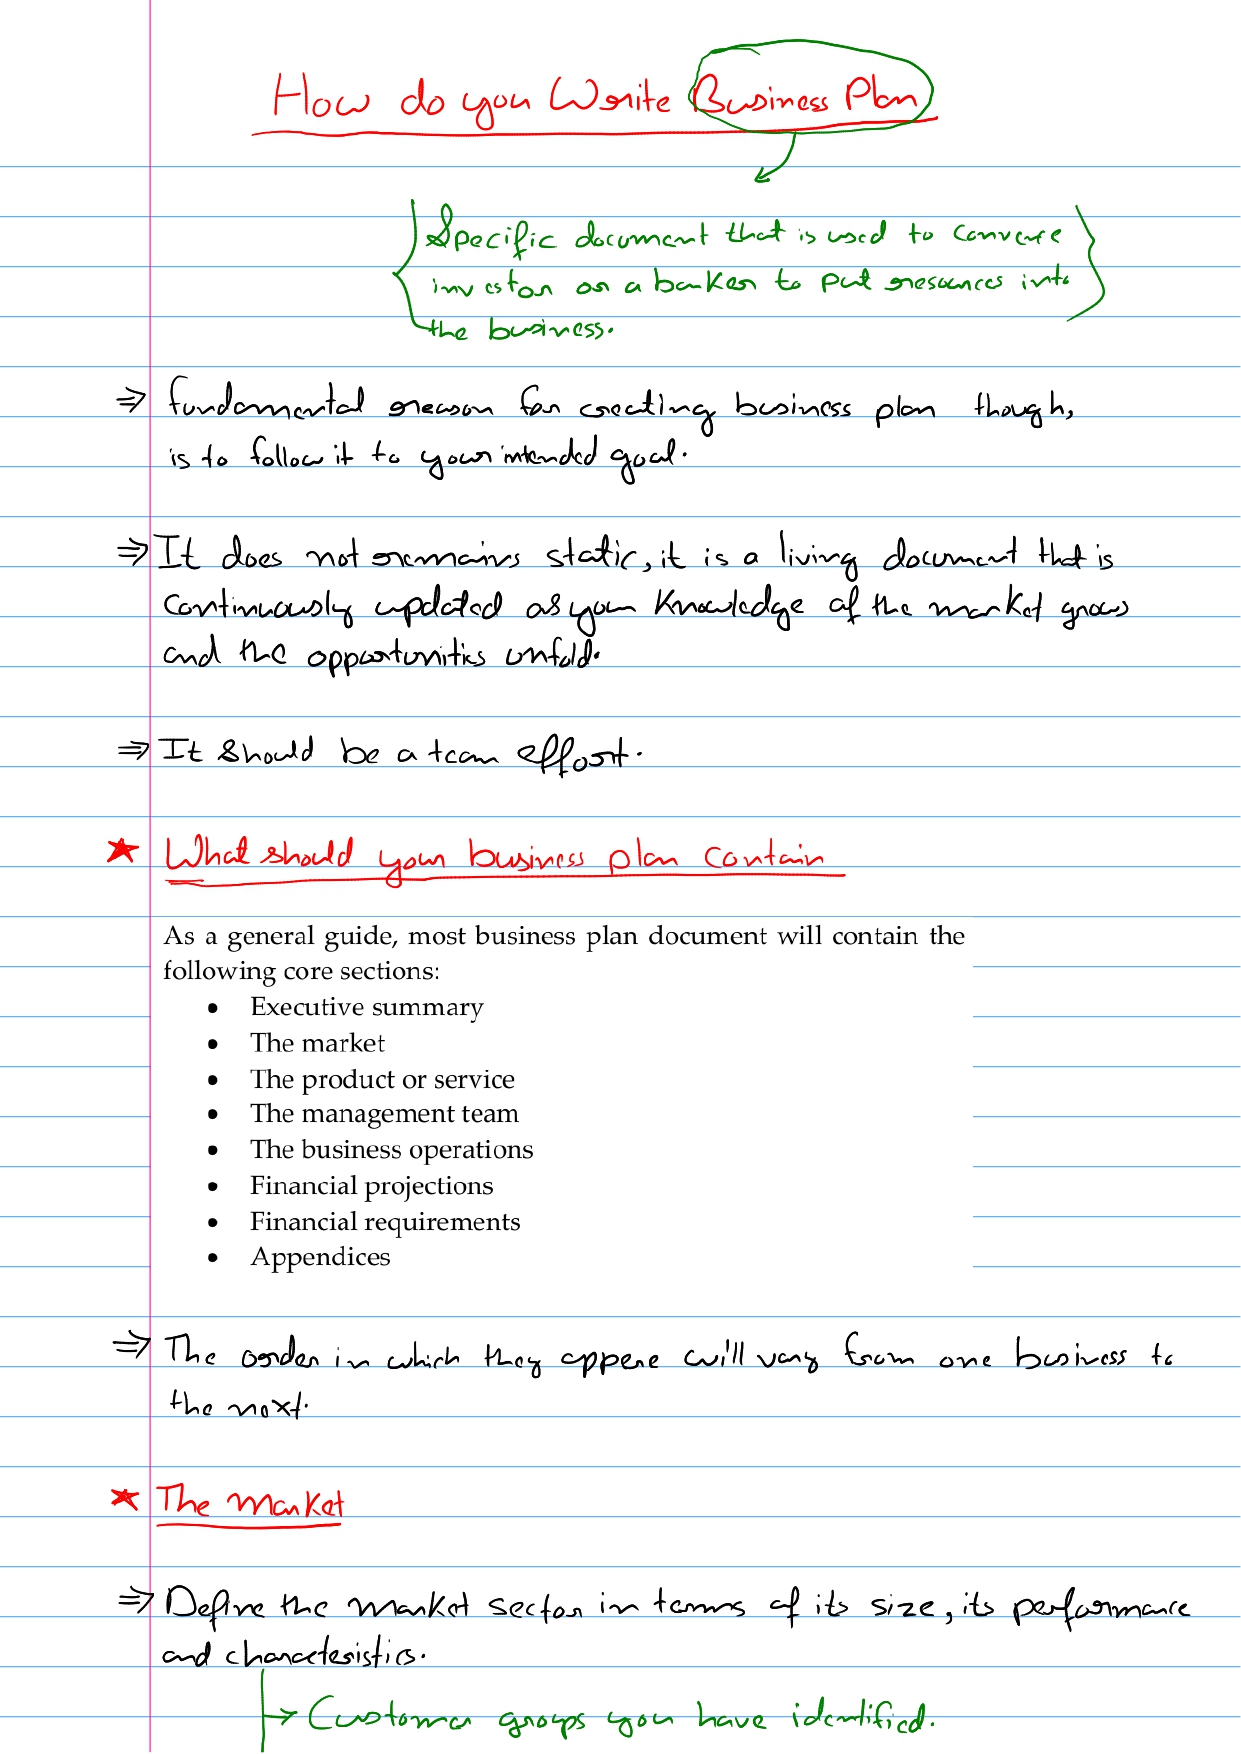 How do you Write Business Plan
Specific document that is used to convence
investor or a banker to put resources into
the business.
⇒ fundamental reason for creating business plan though,
is to follow it to your intended goal.
⇒ It does not remains static, it is a living document that is
continuously updated as your knowledge of the market grows
and the opportunities unfold.
⇒ It should be a team effort.
★ What should your business plan contain
As a general guide, most business plan document will contain the
following core sections:
• Executive summary
• The market
• The product or service
• The management team
• The business operations
• Financial projections
• Financial requirements
• Appendices
⇒ The order in which they appere will vary from one business to
the next.
★ The Market
⇒ Define the market sector in terms of its size, its performance
and characteristics.
→ Customer groups you have identified.